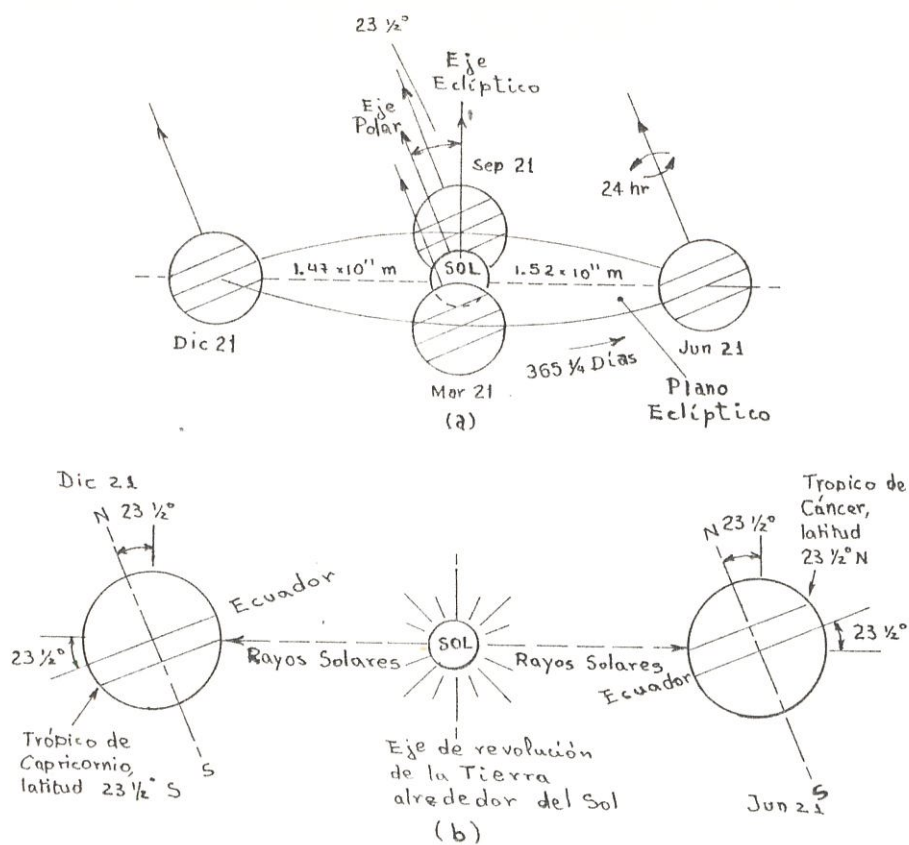 23 ½°
Eje
Eclíptico
Eje
Polar
Sep 21
24 hr
1.47 x10¹¹ m
SOL
1.52 x 10¹¹ m
Dic 21
Mar 21
365 ¼ Días
Jun 21
Plano
Eclíptico
(a)
Dic 21
N
23 ½°
Ecuador
23 ½°
Rayos Solares
Trópico de
Capricornio,
latitud 23 ½° S
S
SOL
Rayos Solares
Eje de revolución
de la Tierra
alrededor del Sol
Tropico de
Cáncer,
latitud
23 ½° N
N
23 ½°
23 ½°
Ecuador
S
Jun 21
(b)